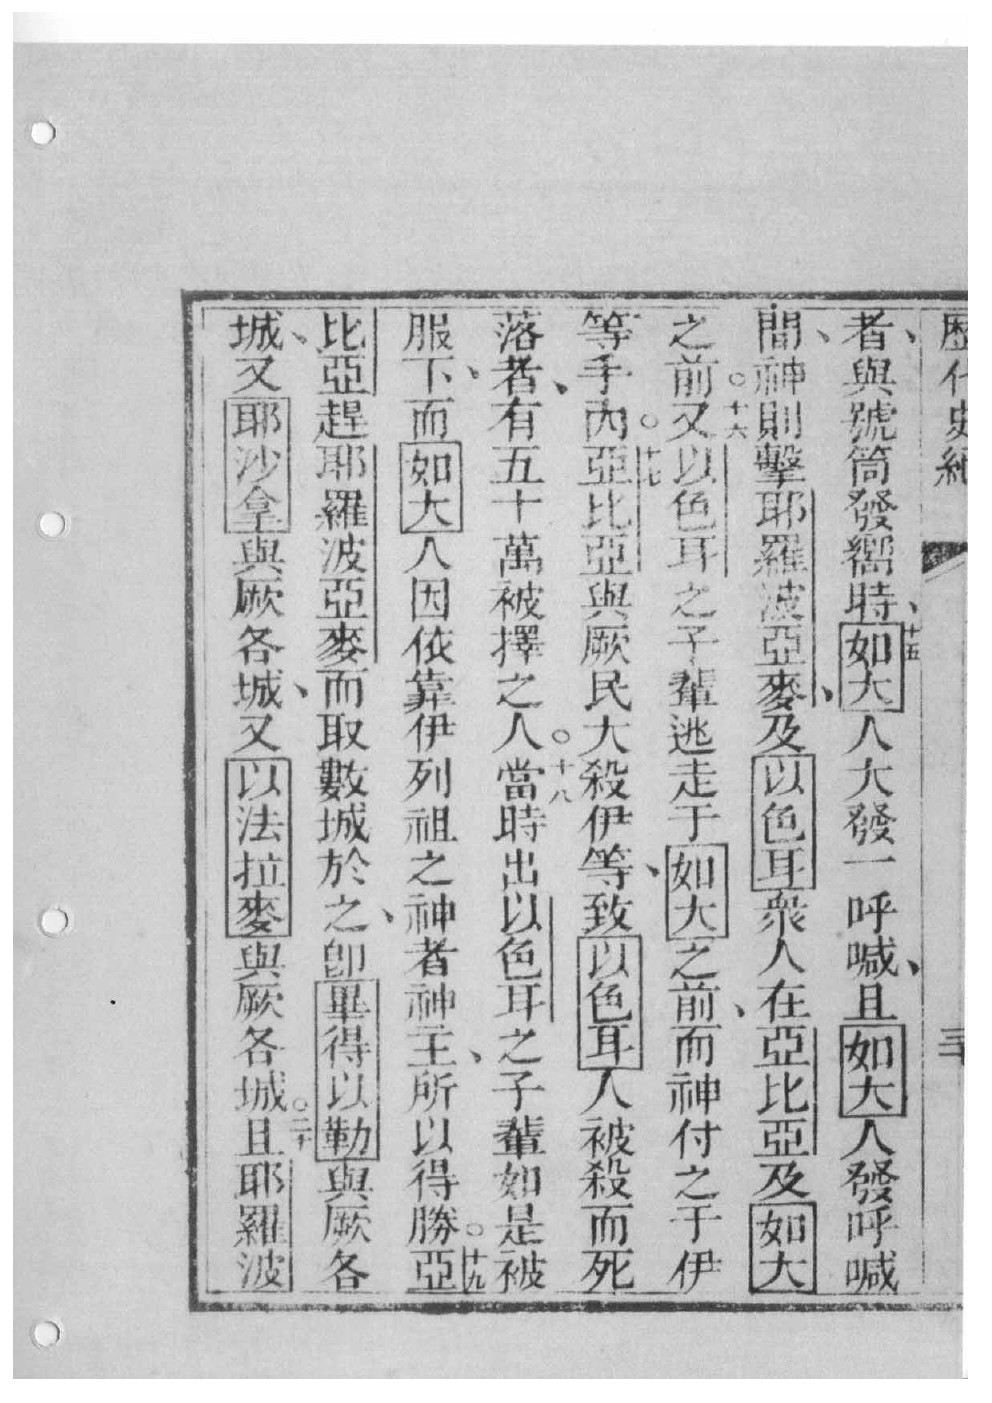 歷代史紀 三十
者、與號筒發嚮時、十五如大人大發一呼喊、且如大人發呼喊
間、神則擊耶羅波亞麥、及以色耳衆人在亞比亞及如大
之前。十六又以色耳之子輩逃走于如大之前、而神付之于伊
等手內。十七亞比亞與厥民大殺伊等、致以色耳人被殺而死
落者、有五十萬被擇之人。十八當時出以色耳之子輩如是被
服下、而如大人因依靠伊列祖之神者神主、所以得勝。十九亞
比亞趕耶羅波亞麥而取數城於之、卽畢得以勒與厥各
城、又耶沙拿與厥各城、又以法拉麥與厥各城。二十且耶羅波